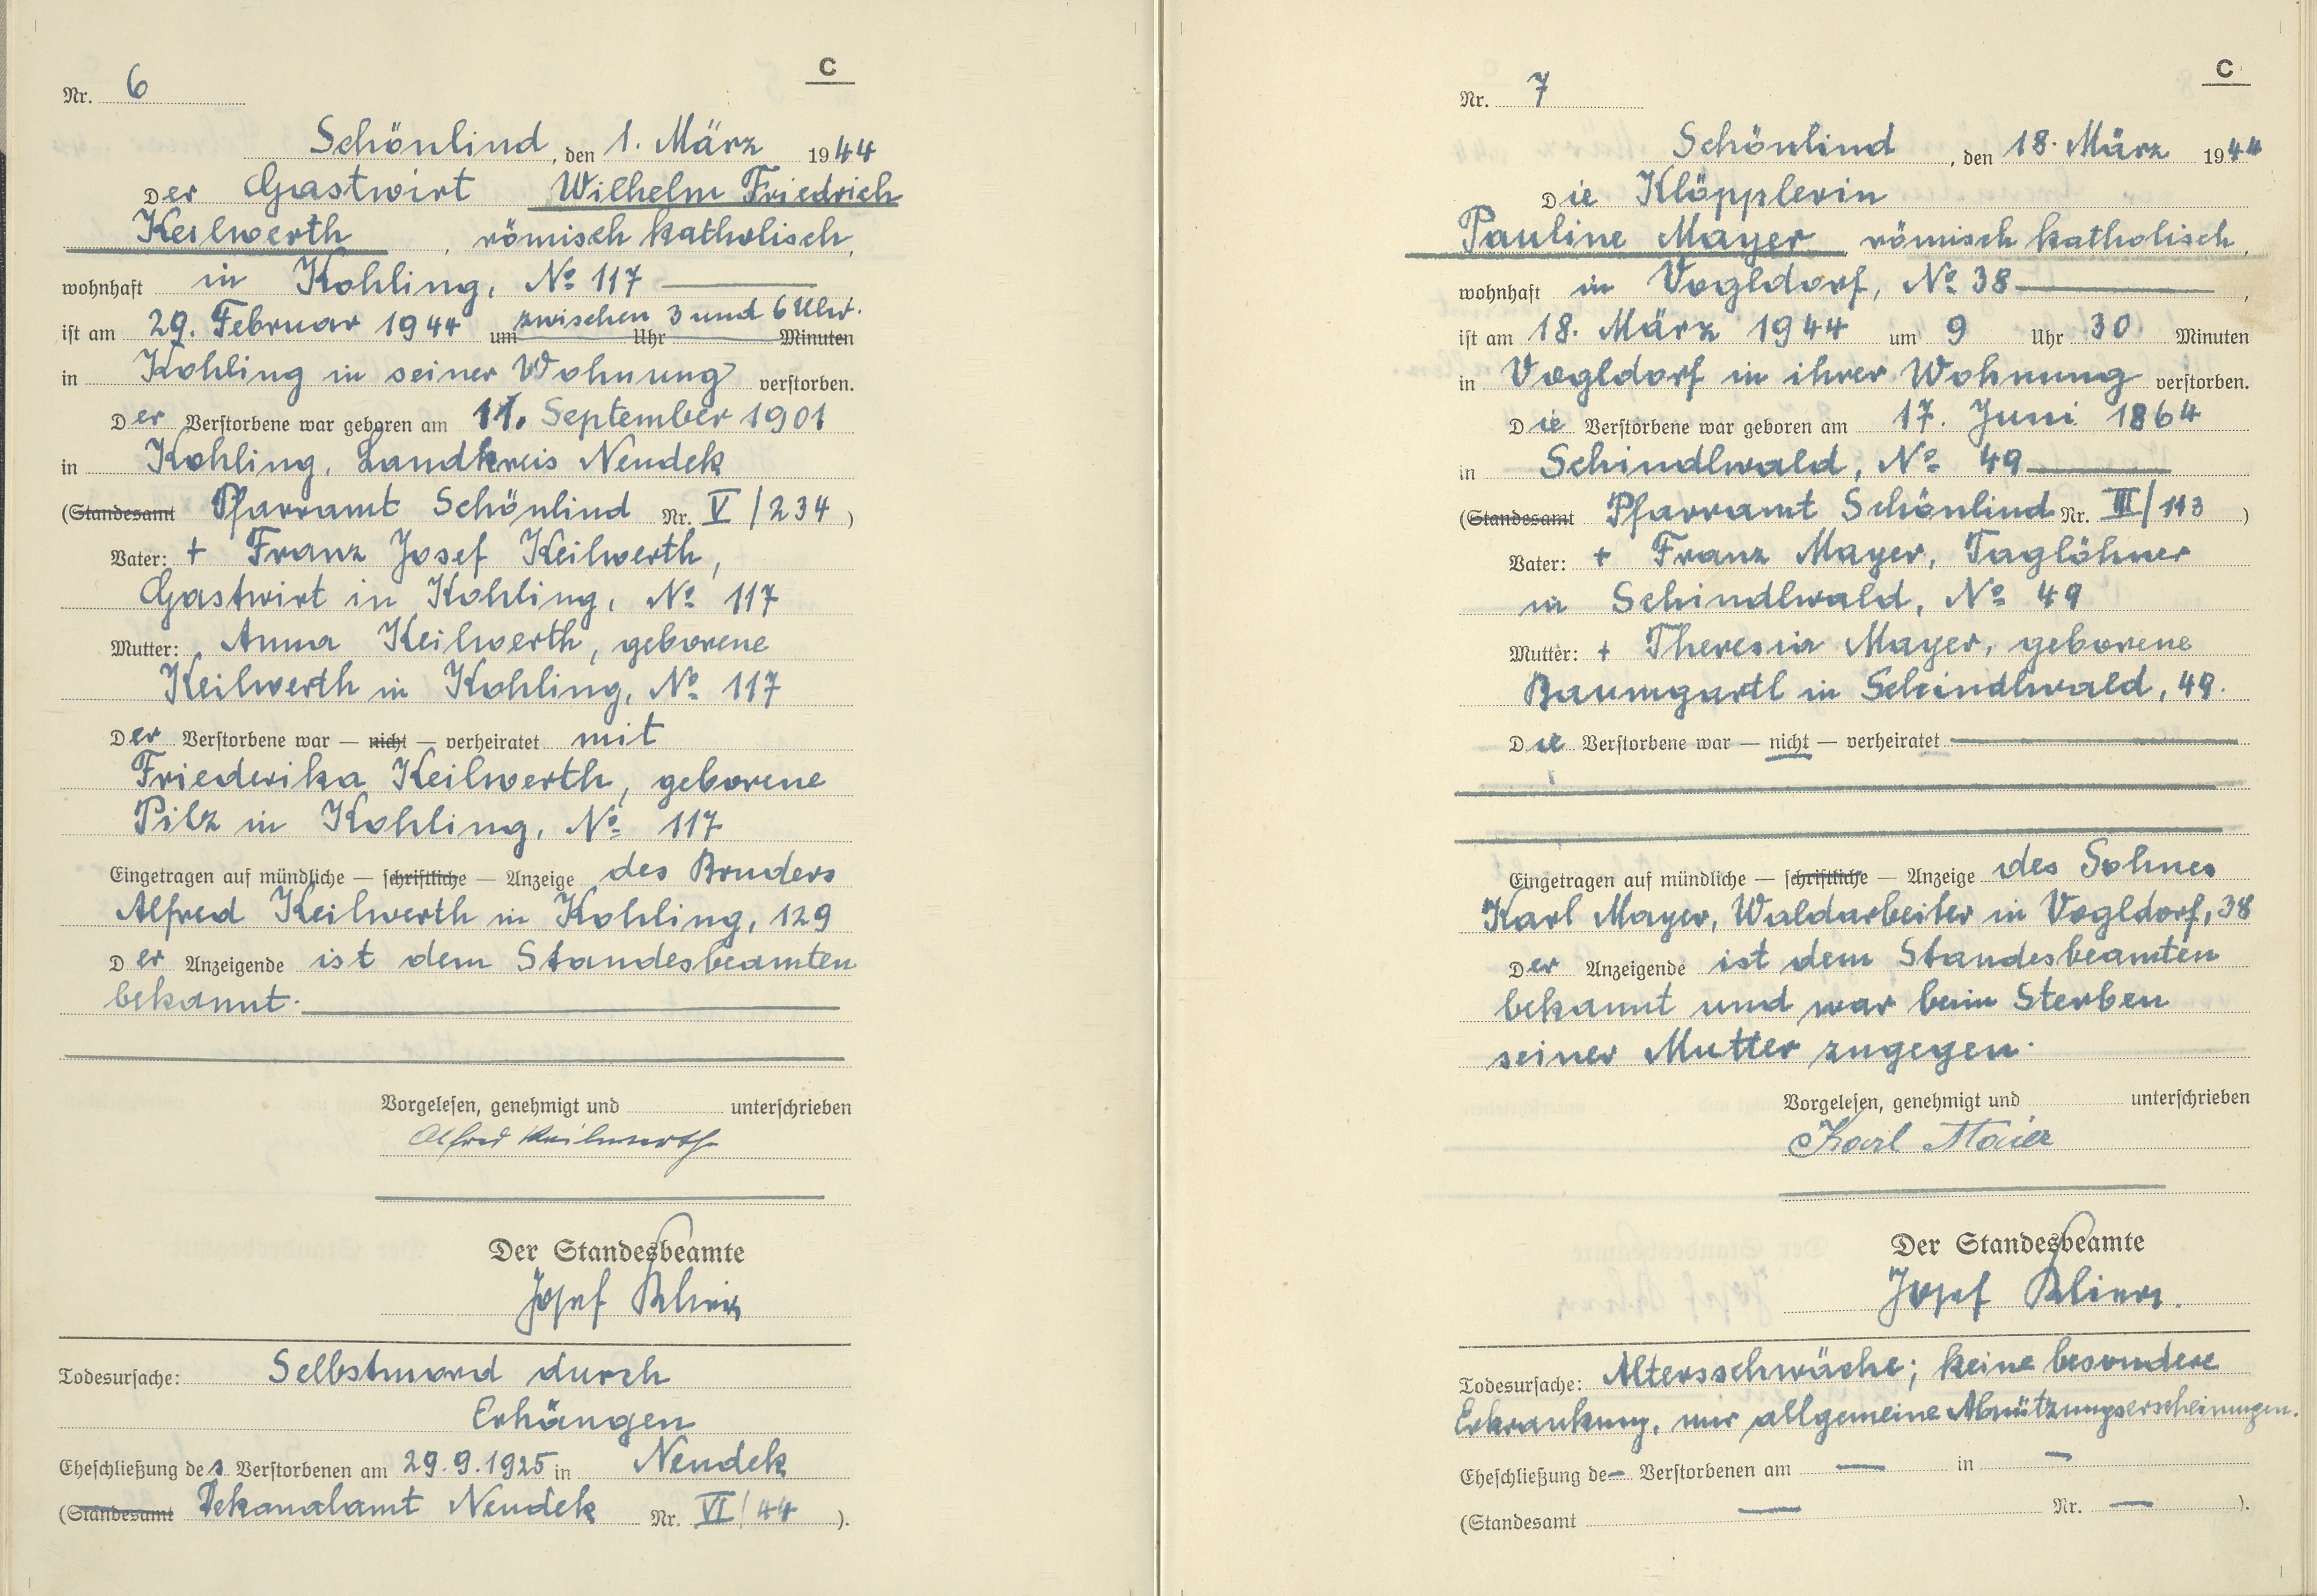 C
Nr. 6
Schönlind, den 1. März 1944
Der Gastwirt Wilhelm Friedrich
Keilwerth, römisch katholisch,
wohnhaft in Kohling, No 117
zwischen 3 und 6 Uhr.
ist am 29. Februar 1944 um Uhr Minuten
in Kohling in seiner Wohnung verstorben.
Der Verstorbene war geboren am 11. September 1901
in Kohling, Landkreis Neudek
(Standesamt Pfarramt Schönlind Nr. V/234)
Vater: + Franz Josef Keilwerth,
Gastwirt in Kohling, No 117
Mutter: Anna Keilwerth, geborene
Keilwerth in Kohling, No 117
Der Verstorbene war — nicht — verheiratet mit
Friederika Keilwerth, geborene
Pilz in Kohling, No 117
Eingetragen auf mündliche — schriftliche — Anzeige des Bruders
Alfred Keilwerth in Kohling, 129
Der Anzeigende ist dem Standesbeamten
bekannt.
Vorgelesen, genehmigt und unterschrieben
Alfred Keilwerth
Der Standesbeamte
Josef
Todesursache: Selbstmord durch
Erhängen
Eheschließung des Verstorbenen am 29.9.1925 in Neudek
(Standesamt Dekanalamt Neudek Nr. VI/44).
C
Nr. 7
Schönlind, den 18. März 1944
Die Klöpplerin
Pauline Mayer römisch katholisch,
wohnhaft in Vogldorf, No 38,
ist am 18. März 1944 um 9 Uhr 30 Minuten
in Vogldorf in ihrer Wohnung verstorben.
Die Verstorbene war geboren am 17. Juni 1864
in Schindlwald, No 49
(Standesamt Pfarramt Schönlind Nr. III/113)
Vater: + Franz Mayer, Taglöhner
in Schindlwald, No 49
Mutter: + Theresia Mayer, geborene
Baumgartl in Schindlwald, 49.
Die Verstorbene war — nicht — verheiratet
Eingetragen auf mündliche — schriftliche — Anzeige des Sohnes
Karl Mayer, Waldarbeiter in Vogldorf, 38
Der Anzeigende ist dem Standesbeamten
bekannt und war beim Sterben
seiner Mutter zugegen.
Vorgelesen, genehmigt und unterschrieben
Karl Maier
Der Standesbeamte
Josef
Todesursache: Altersschwäche; keine besondere
Erkrankung, nur allgemeine Abnützungserscheinungen.
Eheschließung de— Verstorbenen am — in —
(Standesamt — Nr. —).